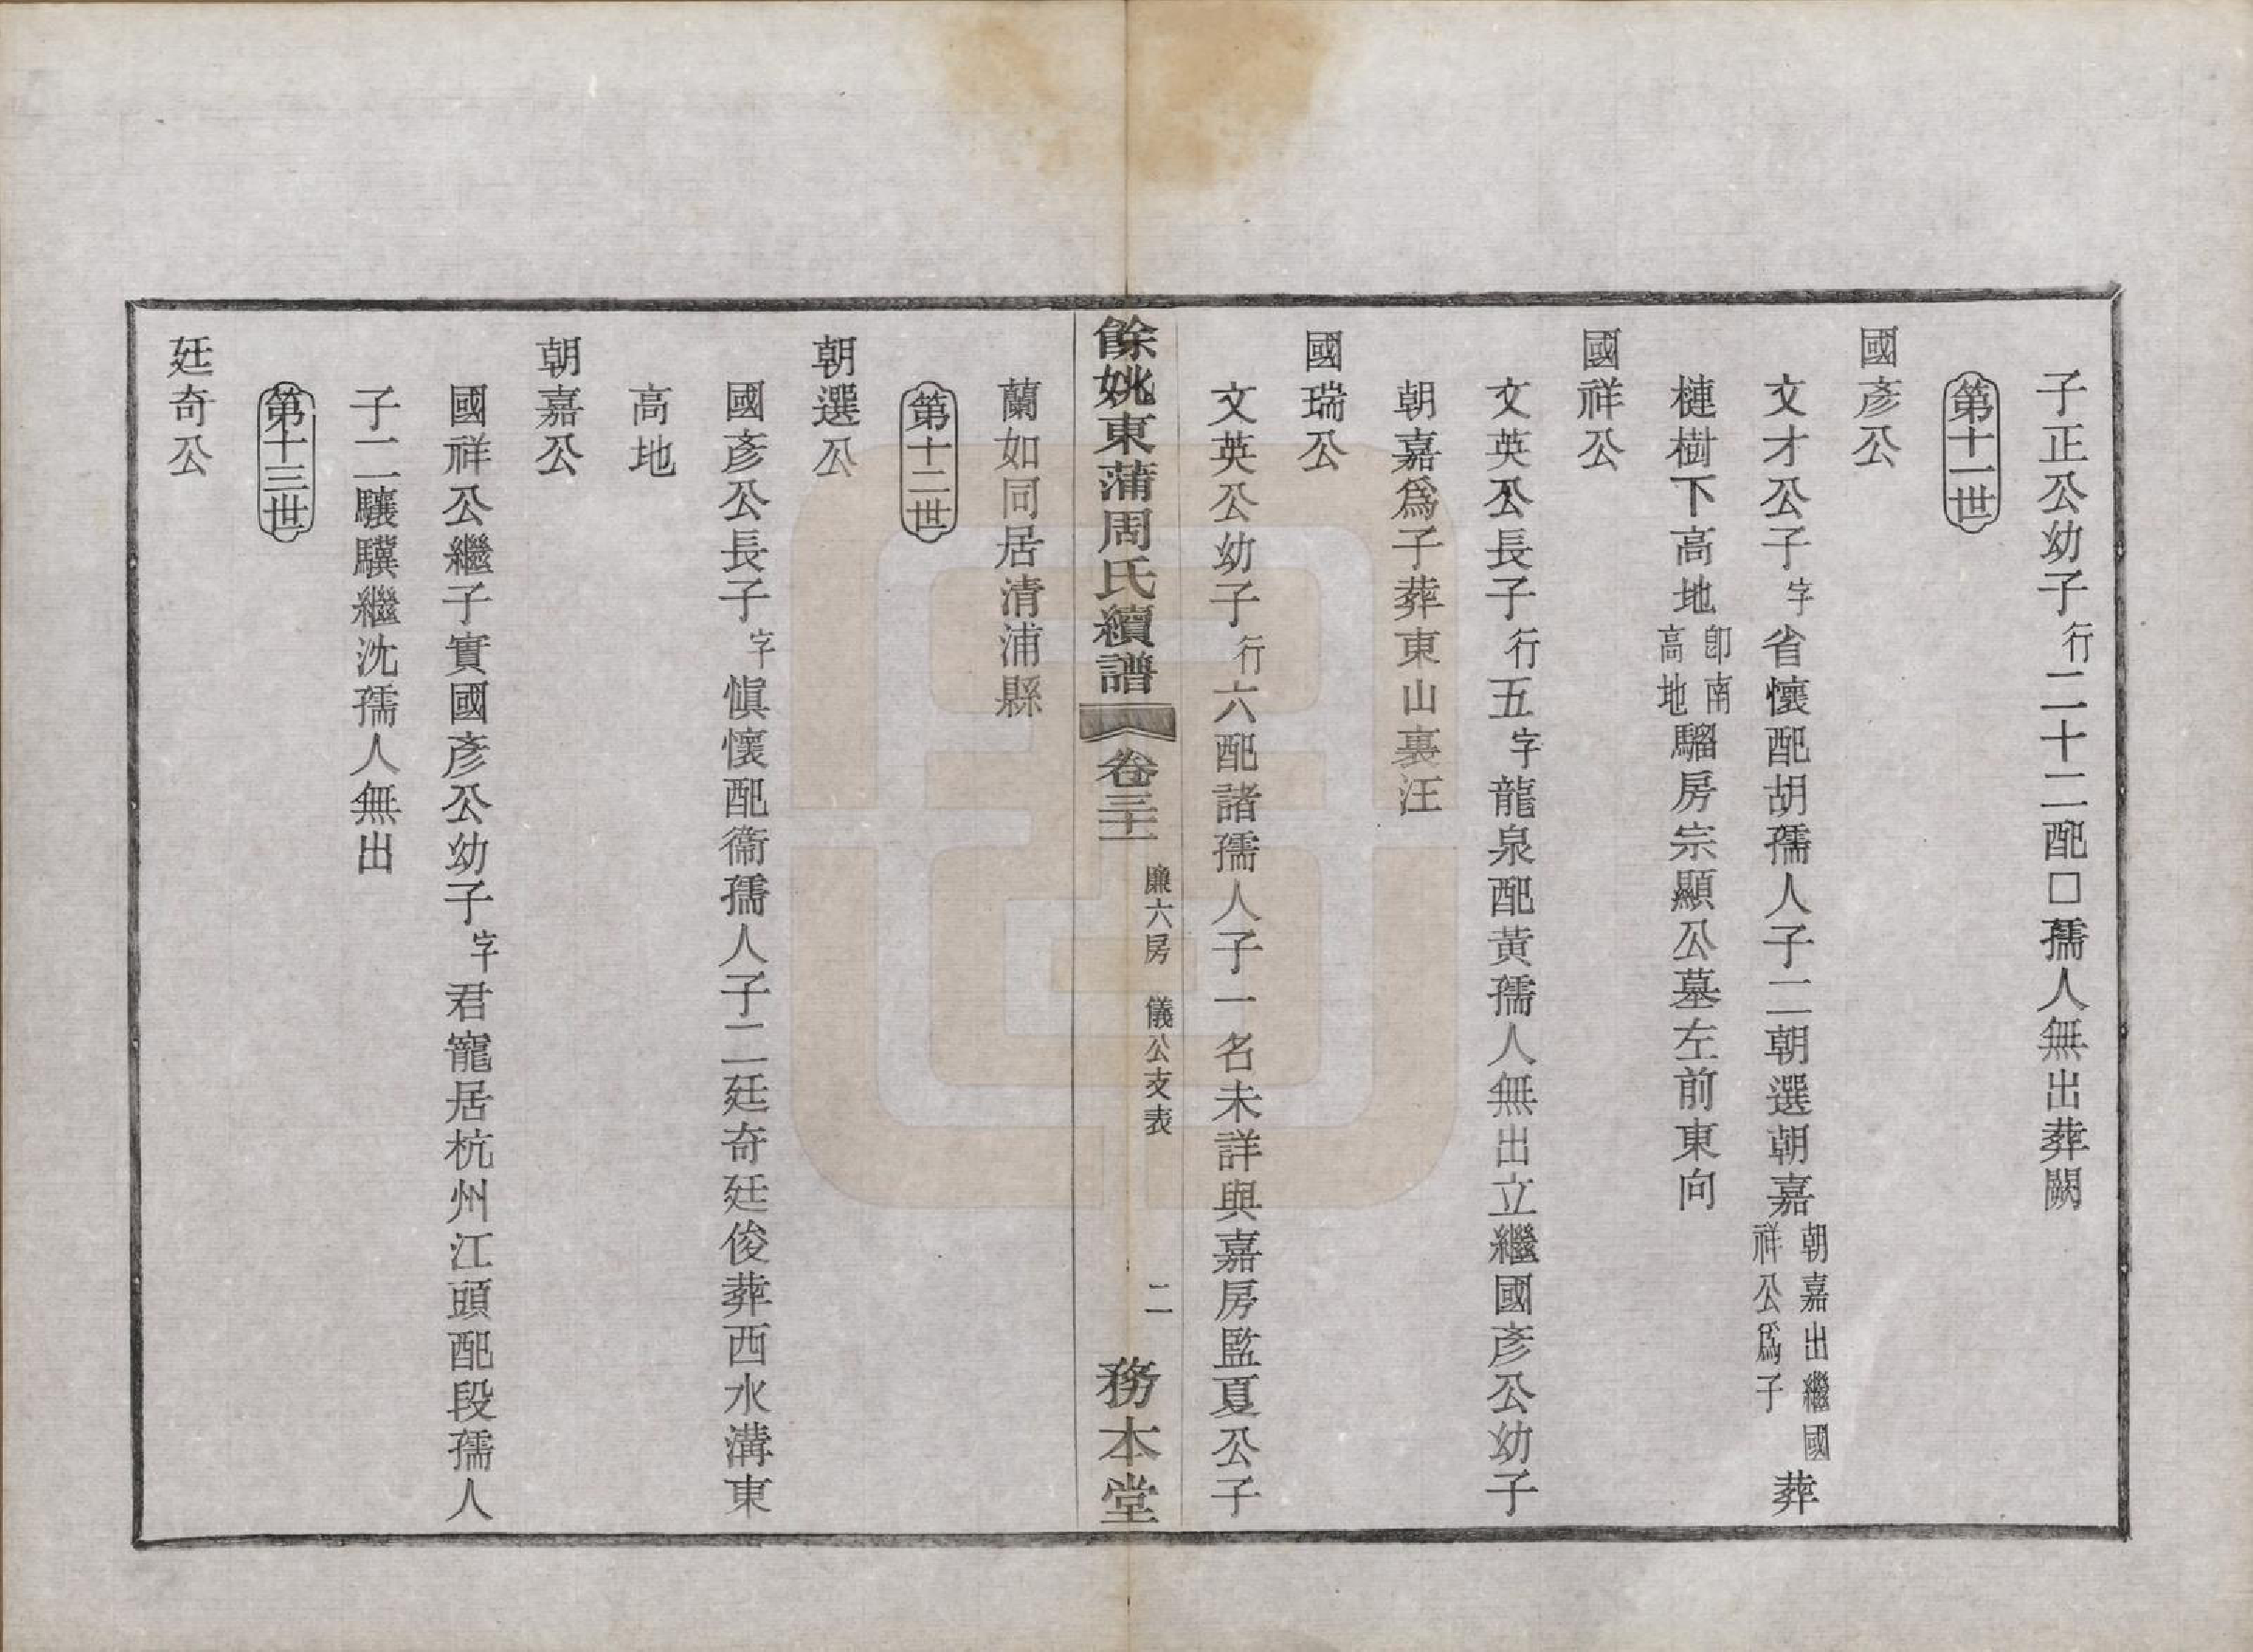 子正公幼子行二十二配□孺人無出葬闕
第十一世
國彥公
文才公子字省懷配胡孺人子二朝選朝嘉朝嘉出繼國祥公爲子葬
槤樹下高地卽南高地騮房宗顯公墓左前東向
國祥公
文英公長子行五字龍泉配黃孺人無出立繼國彥公幼子
朝嘉爲子葬東山裏汪
國瑞公
文英公幼子行六配諸孺人子一名未詳與嘉房監夏公子
餘姚東蒲周氏續譜 卷三十二 廉六房 儀公支表 二 務本堂
蘭如同居清浦縣
第十二世
朝選公
國彥公長子字愼懷配衞孺人子二廷奇廷俊葬西水溝東
高地
朝嘉公
國祥公繼子實國彥公幼子字君寵居杭州江頭配段孺人
子二驤驥繼沈孺人無出
第十三世
廷奇公